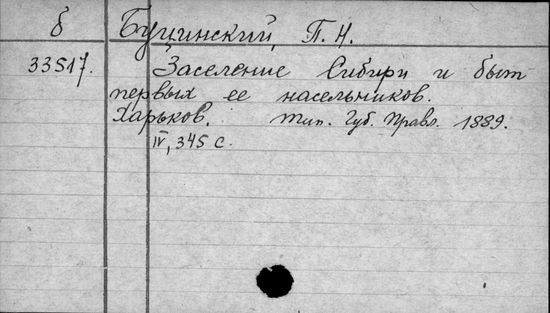 б Буцинский, П. Н.
33517. Заселение Сибири и быт
первых ее насельников.
Харьков. Тип. Губ. Правл. 1889.
IV, 345 с.